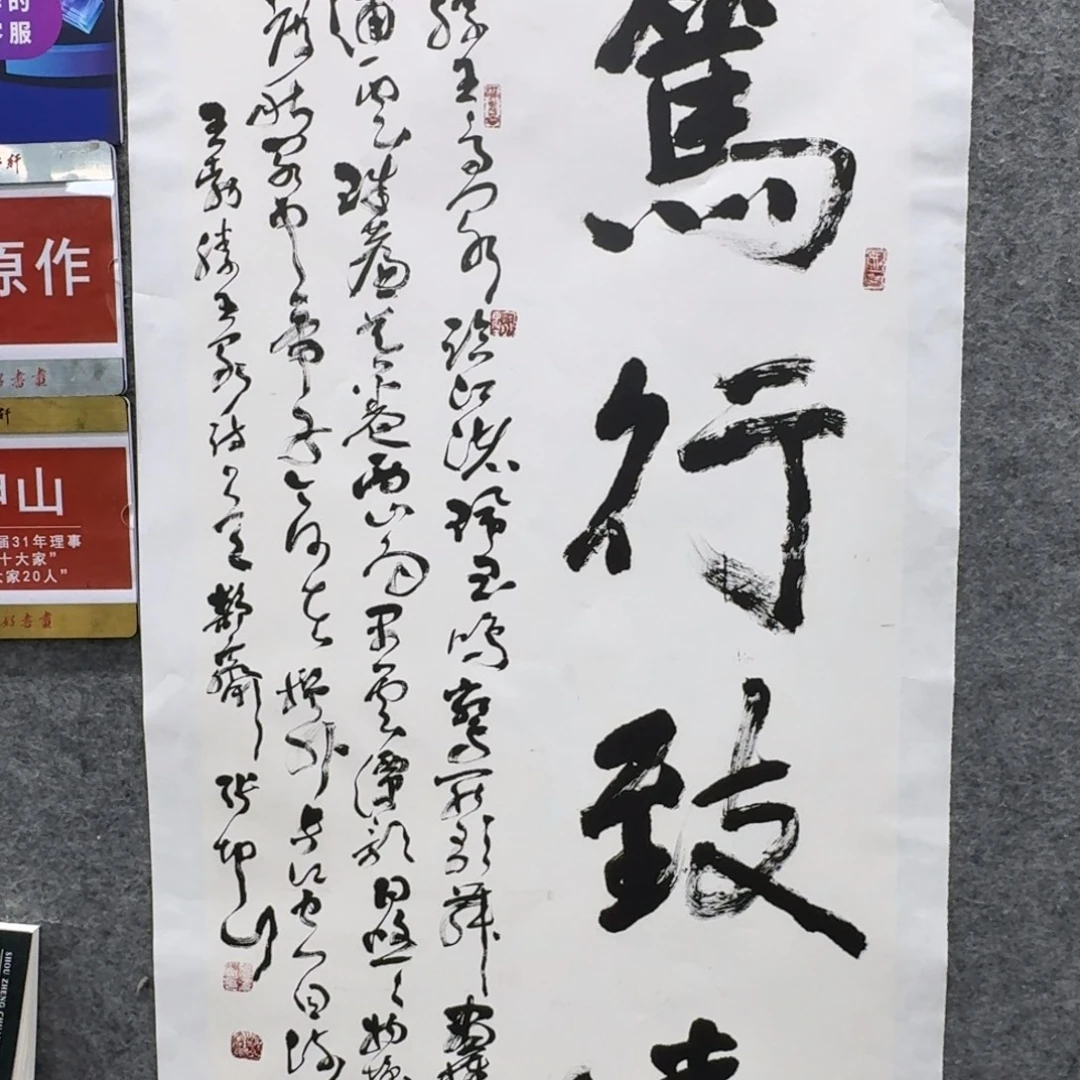 篤行致
滕王高閣臨江渚珮玉鳴鸞罷歌舞畫棟
浦雲珠簾暮卷西山雨閒雲潭影日悠々物換
度秋閣中帝子今何在檻外長江空自流
王勃滕王閣詩
張坤山
的
服
轩
原作
好書畫
轩
坤山
届31年理事
十大家”
大家20人”
好書畫
SHOU ZHENG